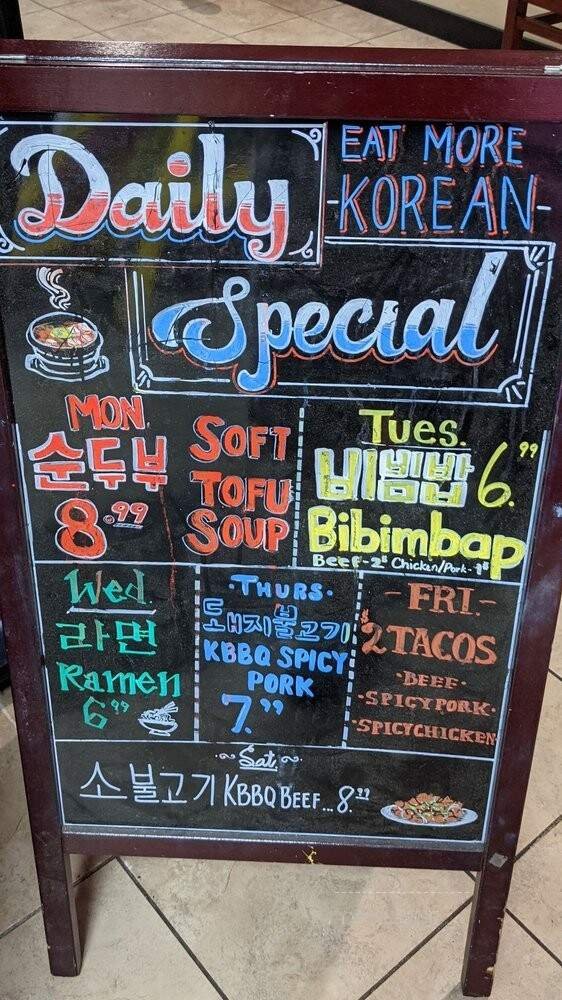 Daily
EAT MORE
-KOREAN-
Special
MON.
순두부
8.99
SOFT
TOFU
SOUP
Tues.
비빔밥 6.99
Bibimbap
Wed.
라면
Ramen
6.99
·THURS·
돼지불고기
KBBQ SPICY
PORK
7.99
-FRI.-
$2 TACOS
·BEEF·
·SPICY PORK·
·SPICY CHICKEN
~Sat.~
소불고기 KBBQ BEEF... 8.99